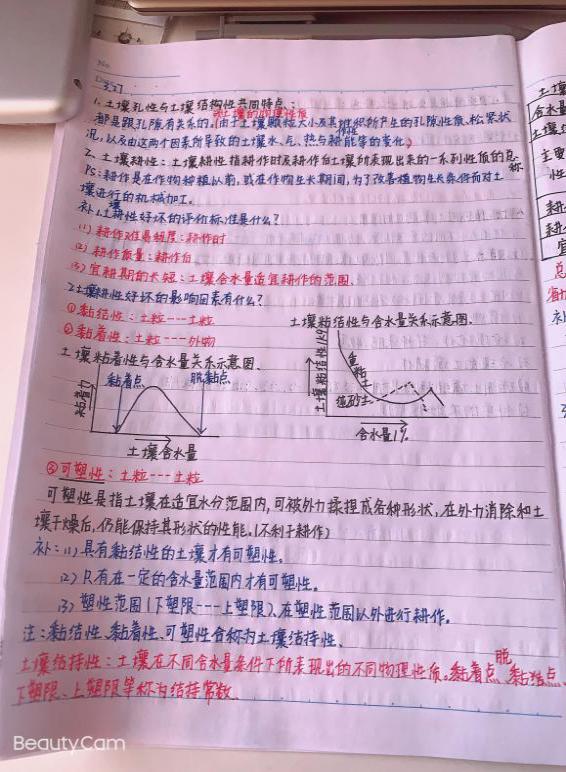 No.
3.27
1. 土壤孔性与土壤结构性共同特点:
土壤的物理性质
都是跟孔隙有关系的,(由于土壤颗粒大小及其堆积所产生的孔隙性质、松紧状
况,以及由这两个因素所导致的土壤水、气、热与耕能等的变化)
作性
2、土壤耕性:土壤耕性指耕作时及耕作后土壤所表现出来的一系列性质的总
称
Ps:耕作是在作物种植以前,或在作物生长期间,为了改善植物生长条件而对土
壤进行的机械加工。
补:1.土壤耕性好坏的评价标准是什么?
(1) 耕作难易程度:耕作时
(2) 耕作质量:耕作后
(3) 宜耕期的长短:土壤含水量适宜耕作的范围.
2.土壤耕性好坏的影响因素有什么?
①黏结性:土粒---土粒
②黏着性:土粒---外物
土壤粘结性与含水量关系示意图.
土壤粘着性与含水量关系示意图、
黏着点
脱黏点
粘着力
土壤含水量
土壤粘结性/kg
黏土
含水量/%
③可塑性:土粒---土粒
可塑性是指土壤在适宜水分范围内,可被外力揉捏成各种形状,在外力消除和土
壤干燥后,仍能保持其形状的性能.(不利于耕作)
补:(1) 具有黏结性的土壤才有可塑性。
(2) 只有在一定的含水量范围内才有可塑性。
(3) 塑性范围(下塑限---上塑限)、在塑性范围以外进行耕作。
注:黏结性、黏着性、可塑性合称为土壤结持性、
土壤结持性:土壤在不同含水量条件下所表现出的不同物理性质。黏着点、脱黏点、
下塑限、上塑限等称为结持常数
BeautyCam